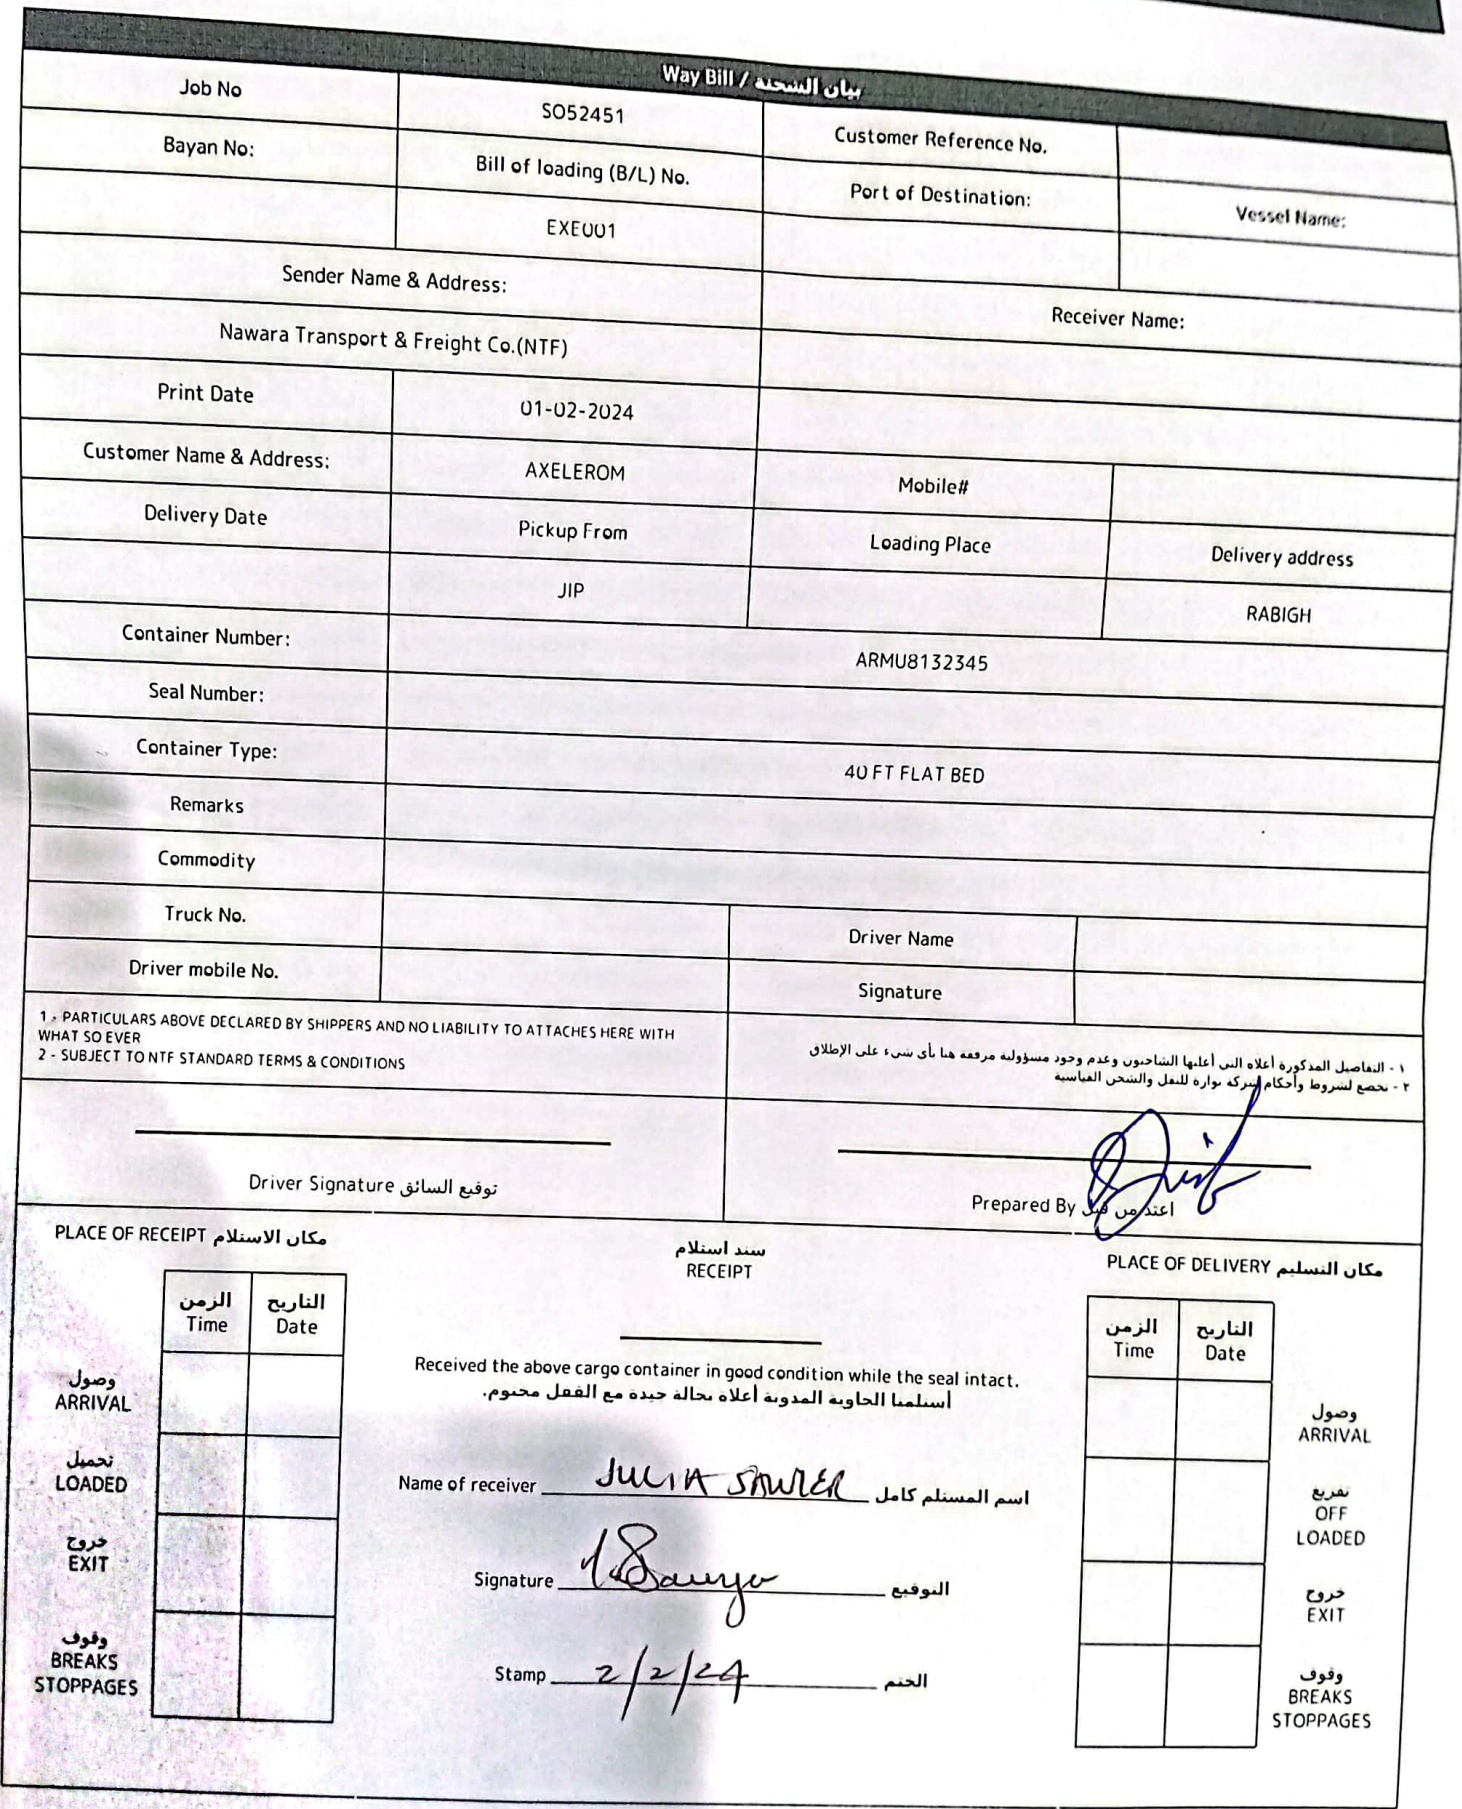 Way Bill / بيان الشحنة
Job No
SO52451
Customer Reference No.
Bayan No:
Bill of loading (B/L) No.
Port of Destination:
Vessel Name:
EXE001
Sender Name & Address:
Receiver Name:
Nawara Transport & Freight Co.(NTF)
Print Date
01-02-2024
Customer Name & Address:
AXELEROM
Mobile#
Delivery Date
Pickup From
Loading Place
Delivery address
JIP
RABIGH
Container Number:
ARMU8132345
Seal Number:
Container Type:
40 FT FLAT BED
Remarks
Commodity
Truck No.
Driver Name
Driver mobile No.
Signature
1 - PARTICULARS ABOVE DECLARED BY SHIPPERS AND NO LIABILITY TO ATTACHES HERE WITH
WHAT SO EVER
2 - SUBJECT TO NTF STANDARD TERMS & CONDITIONS
١ - التفاصيل المذكورة أعلاه التي أعلنها الشاحنون وعدم وجود مسؤولية مرفقة هنا بأي شيء على الإطلاق
٢ - تخضع لشروط وأحكام شركة نوارة للنقل والشحن القياسية
Driver Signature توقيع السائق
Prepared By اعتد من قبل
PLACE OF RECEIPT مكان الاستلام
سند استلام
RECEIPT
PLACE OF DELIVERY مكان التسليم
الزمن
Time
التاريخ
Date
وصول
ARRIVAL
تحميل
LOADED
خروج
EXIT
وقوف
BREAKS
STOPPAGES
Received the above cargo container in good condition while the seal intact.
أستلمنا الحاوية المدونة أعلاه بحالة جيدة مع القفل مختوم.
Name of receiver JULIA اسم المستلم كامل
Signature التوقيع
Stamp 2/2/24 الختم
الزمن
Time
التاريخ
Date
وصول
ARRIVAL
تفريغ
OFF
LOADED
خروج
EXIT
وقوف
BREAKS
STOPPAGES